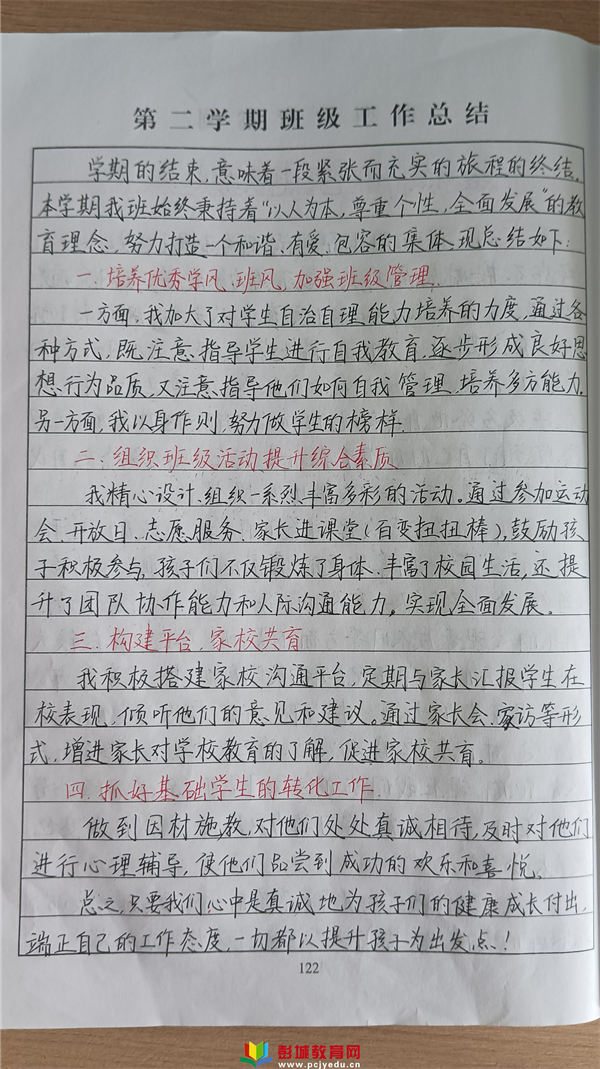 第二学期班级工作总结
学期的结束,意味着一段紧张而充实的旅程的终结。
本学期我班始终秉持着“以人为本,尊重个性,全面发展”的教
育理念、努力打造一个和谐、有爱、包容的集体,现总结如下:
一、培养优秀学风、班风,加强班级管理.
一方面,我加大了对学生自治自理能力培养的力度,通过各
种方式,既注意指导学生进行自我教育,逐步形成良好思
想行为品质,又注意指导他们如何自我管理,培养多方能力。
另一方面,我以身作则,努力做学生的榜样.
二、组织班级活动提升综合素质
我精心设计、组织一系列丰富多彩的活动。通过参加运动
会、开放日、志愿服务、家长进课堂(百变扭扭棒),鼓励孩
子积极参与,孩子们不仅锻炼了身体、丰富了校园生活,还提
升了团队协作能力和人际沟通能力,实现全面发展。
三、构建平台,家校共育
我积极搭建家校沟通平台,定期与家长汇报学生在
校表现,倾听他们的意见和建议。通过家长会、家访等形
式,增进家长对学校教育的了解,促进家校共育。
四、抓好基础学生的转化工作.
做到因材施教,对他们处处真诚相待,及时对他们
进行心理辅导,使他们品尝到成功的欢乐和喜悦。
总之,只要我们心中是真诚地为孩子们的健康成长付出,
端正自己的工作态度,一切都以提升孩子为出发点!
122
彭城教育网
www.pcjyedu.cn